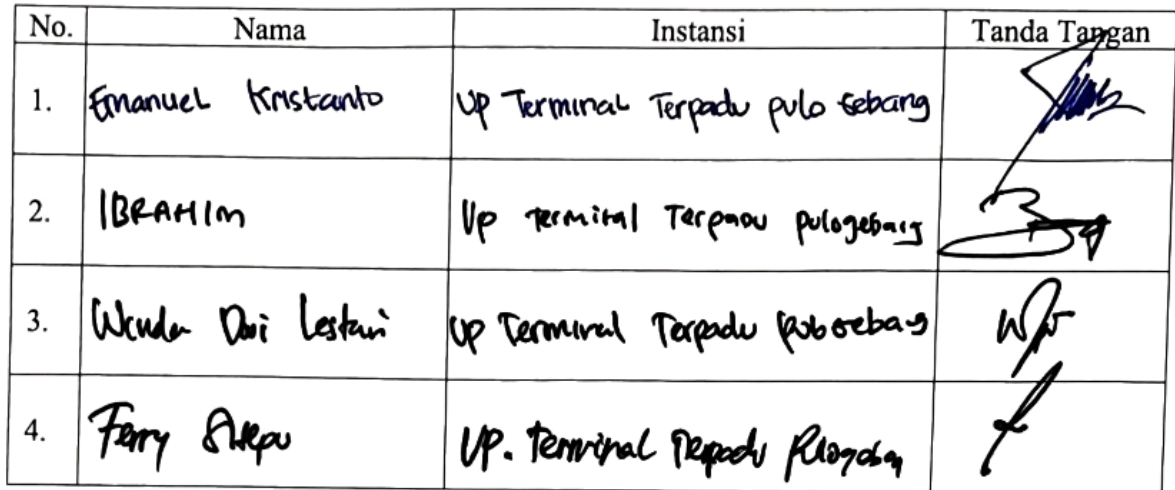 No. Nama Instansi Tanda Tangan
1. Emanuel Kristanto UP Terminal Terpadu pulo Gebang
2. IBRAHIM Up Terminal Terpadu pulogebang
3. Wenda Dwi Lestari UP Terminal Terpadu pulogebang
4. Ferry UP. Terminal Terpadu Pulogebang